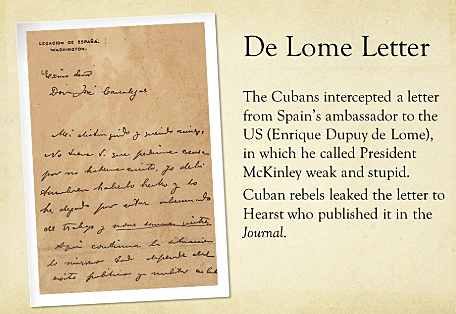 LEGACION DE ESPAÑA.
WASHINGTON.
Excmo Señor
Don José Canalejas
Mi distinguido y querido amigo:
No tiene V. que pedirme excusa
por no haberme escrito, yo debí
tambien haberlo hecho y lo
he dejado por estar abrumado
de trabajo y nous sommes quittes.
Aqui continua la situacion
lo mismo. Todo depende del
exito politico y militar en
De Lome Letter
The Cubans intercepted a letter
from Spain's ambassador to the
US (Enrique Dupuy de Lome),
in which he called President
McKinley weak and stupid.
Cuban rebels leaked the letter to
Hearst who published it in the
Journal.